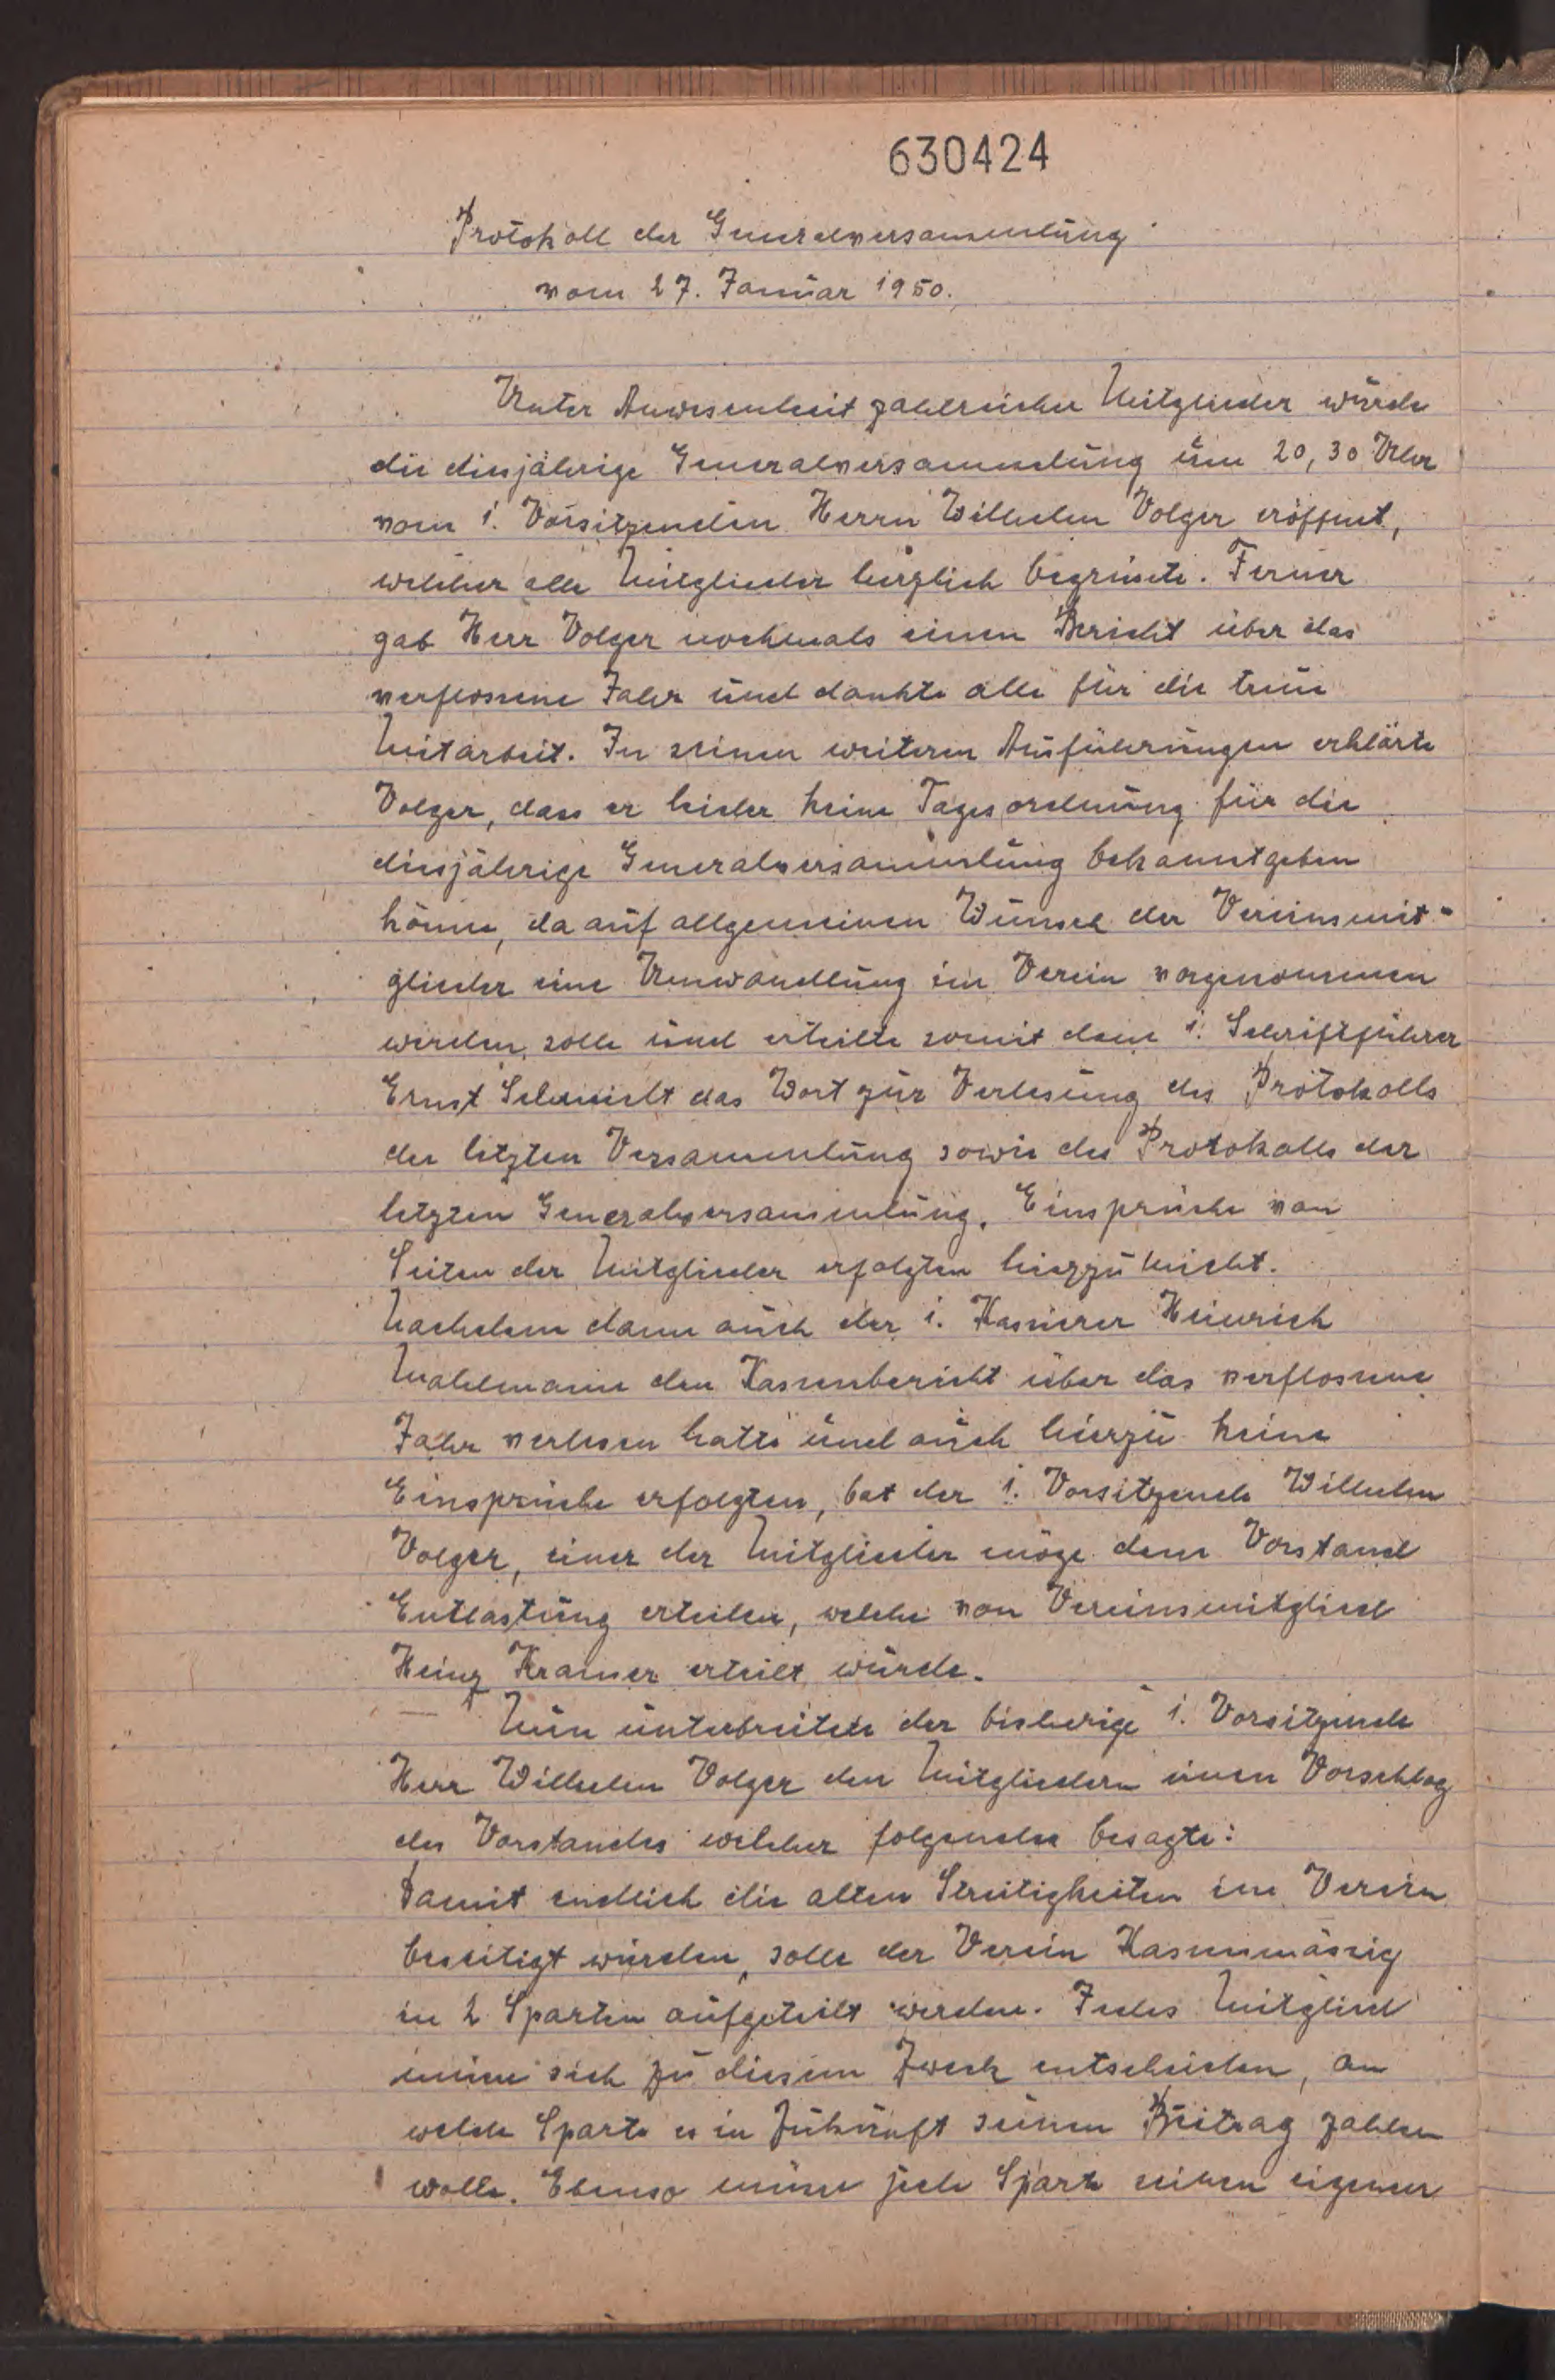 630424
Protokoll der Generalversammlung
vom 27. Januar 1950.
Unter Anwesenheit zahlreicher Mitglieder wurde
die diesjährige Generalversammlung um 20,30 Uhr
vom 1. Vorsitzenden Herrn Wilhelm Volger eröffnet,
welcher alle Mitglieder herzlich begrüsste. Ferner
gab Herr Volger nochmals einen Bericht über das
verflossene Jahr und dankte alle für die treue
Mitarbeit. In seinen weiteren Ausführungen erklärte
Volger, dass er leider keine Tagesordnung für die
diesjährige Generalversammlung bekanntgeben
könne, da auf allgemeinen Wunsch der Vereinsmit-
glieder eine Umwandlung im Verein vorgenommen
werden solle und erteilte somit dem 1. Schriftführer
Ernst Schmidt das Wort zur Verlesung des Protokolls
der letzten Versammlung sowie des Protokolls der
letzten Generalversammlung. Einsprüche von
Seiten der Mitglieder erfolgten hierzu nicht.
Nachdem dann auch der 1. Kassierer Heinrich
Mahlmann den Kassenbericht über das verflossene
Jahr verlesen hatte und auch hierzu keine
Einsprüche erfolgten, bat der 1. Vorsitzende Wilhelm
Volger, einer der Mitglieder möge dem Vorstand
Entlastung erteilen, welche von Vereinsmitglied
Heinz Kramer erteilt wurde.
Nun unterbreitete der bisherige 1. Vorsitzende
Herr Wilhelm Volger den Mitgliedern einen Vorschlag
des Vorstandes welcher folgendes besagte:
Damit endlich die alten Streitigkeiten im Verein
beseitigt würden, solle der Verein Kassenmässig
in 2 Sparten aufgeteilt werden. Jedes Mitglied
müsse sich zu diesem Zweck entscheiden, an
welche Sparte es in Zukunft seinen Beitrag zahlen
wolle. Ebenso müsse jede Sparte seinen eigenen